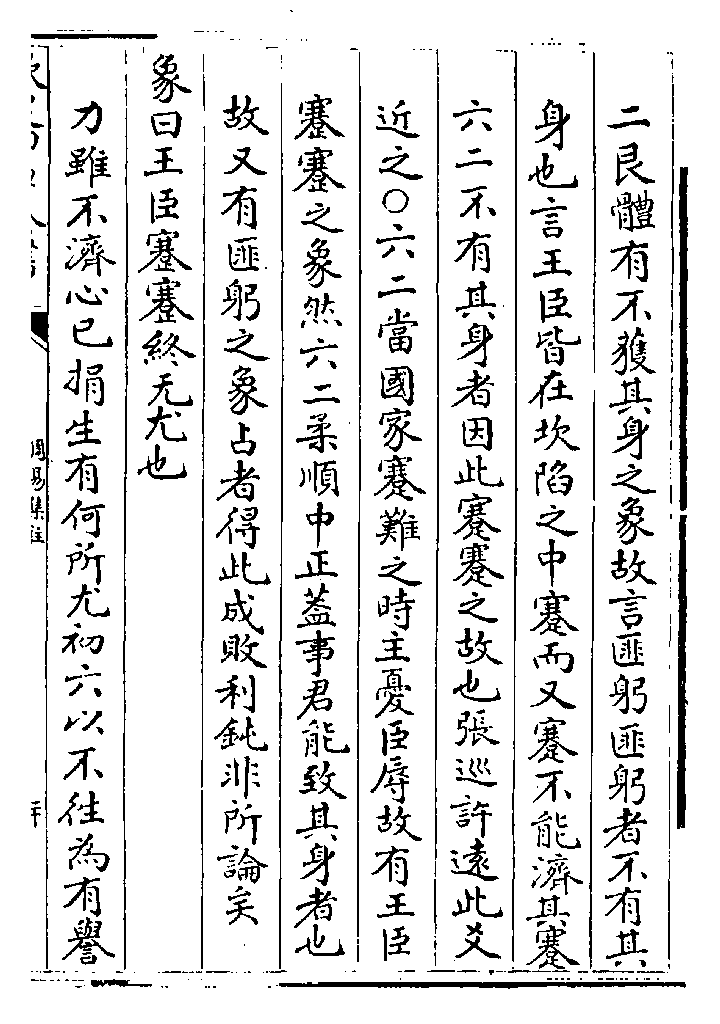 二艮體有不獲其身之象故言匪躬匪躬者不有其
身也言王臣皆在坎陷之中蹇而又蹇不能濟其蹇
六二不有其身者因此蹇蹇之故也張巡許遠此爻
近之○六二當國家蹇難之時主憂臣辱故有王臣
蹇蹇之象然六二柔順中正蓋事君能致其身者也
故又有匪躬之象占者得此成敗利鈍非所論矣
象曰王臣蹇蹇終无尤也
力雖不濟心已捐生有何所尤初六以不往為有譽
周易集註